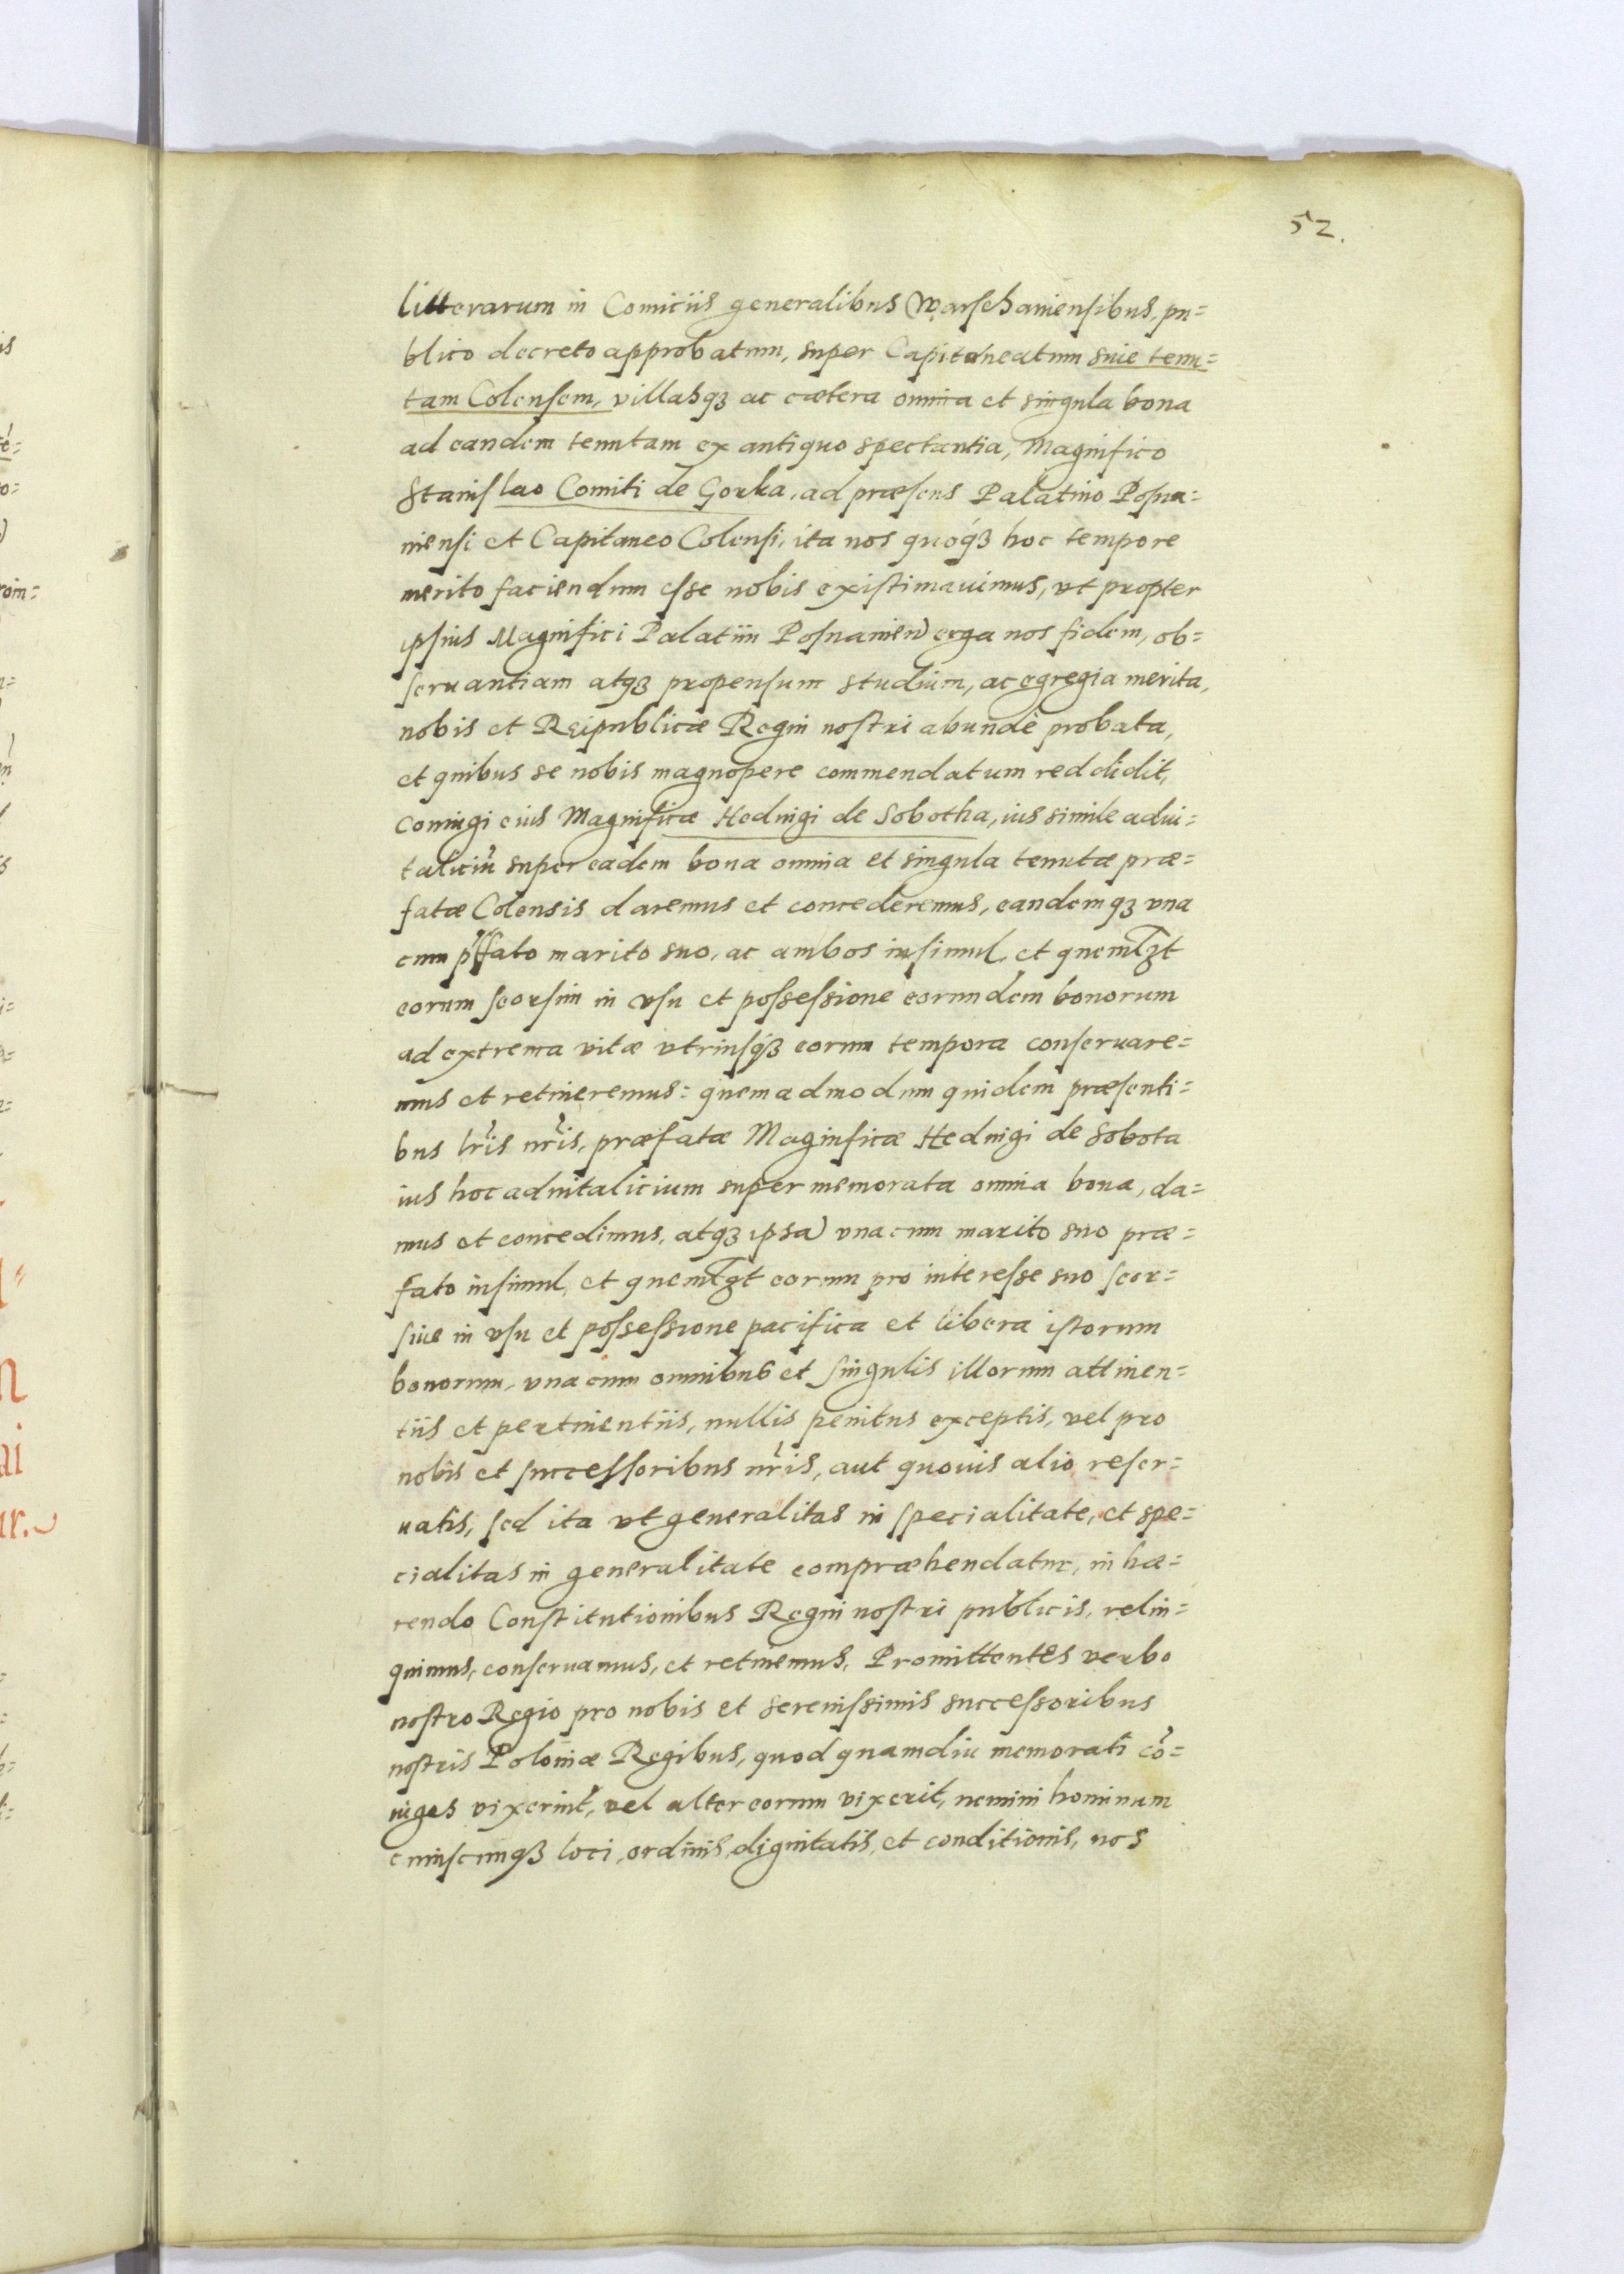 52.
litterarum in Comiciis generalibus Warschauiensibus, pu=
blico decreto approbatum, super Capitaneatum siue tenu=
tam Colensem, villasqȝ ac cætera omnia et singula bona
ad eandem tenutam ex antiquo spectantia, Magnifico
Stanislao Comiti de Gorka, ad præsens Palatino Posna=
niensi et Capitaneo Colensi, ita nos quoqȝ hoc tempore
merito faciendum esse nobis existimauimus, vt propter
ipsius Magnifici Palatini Posnanien erga nos fidem, ob=
seruantiam atqȝ propensum studium, ac egregia merita,
nobis et Reipublicæ Regni nostri abundè probata,
et quibus se nobis magnopere commendatum reddidit,
Coniugi eius Magnificæ Heduigi de Sobotha, ius simile adui=
taliciũ super eadem bona omnia et singula tenutæ præ=
fatæ Colensis daremus et concederemus, eandemqȝ vna
cum p̃fato marito suo, ac ambos insimul, et quemlȝt
eorum seorsim in vsu et possessione eorundem bonorum
ad extrema vitæ vtriusqȝ eorum tempora conseruare=
mus et retineremus: quemadmodum quidem præsenti=
bus lr̃is nr̃is, præfatæ Magnificæ Heduigi de Sobota
ius hoc aduitalicium super memorata omnia bona, da=
mus et concedimus, atqȝ ipsã vna cum marito suo præ=
fato insimul, et quemlȝt eorum pro interesse suo seor=
siue in vsu et possessione pacifica et libera istorum
bonorum, vna cum omnibus et singulis illorum attinen=
tiis et pertinentiis, nullis penitus exceptis, vel pro
nobis et successoribus nr̃is, aut quouis alio reser=
uatis, sed ita vt generalitas in specialitate, et spe=
cialitas in generalitate compræhendatur, in hæ=
rendo Constitutionibus Regni nostri publicis, relin=
quimus, conseruamus, et retinemus, Promittentes verbo
nostro Regio pro nobis et serenissimis successoribus
nostris Poloniæ Regibus, quod quamdiu memorati cõ=
iuges vixerint, vel alter eorum vixerit, nemini hominum
cuiuscunqȝ loci, ordinis, dignitatis, et conditionis, nos